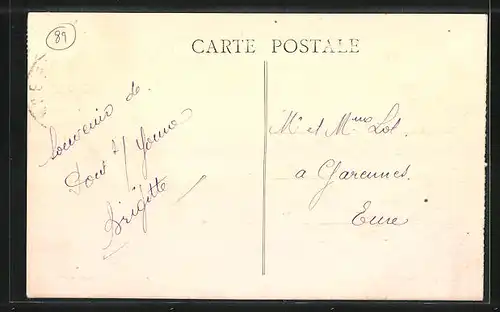 89
CARTE POSTALE
Souvenir de
Pont s/ Yonne
Brigitte
Mr et Mme Lot.
a Garennes.
Eure